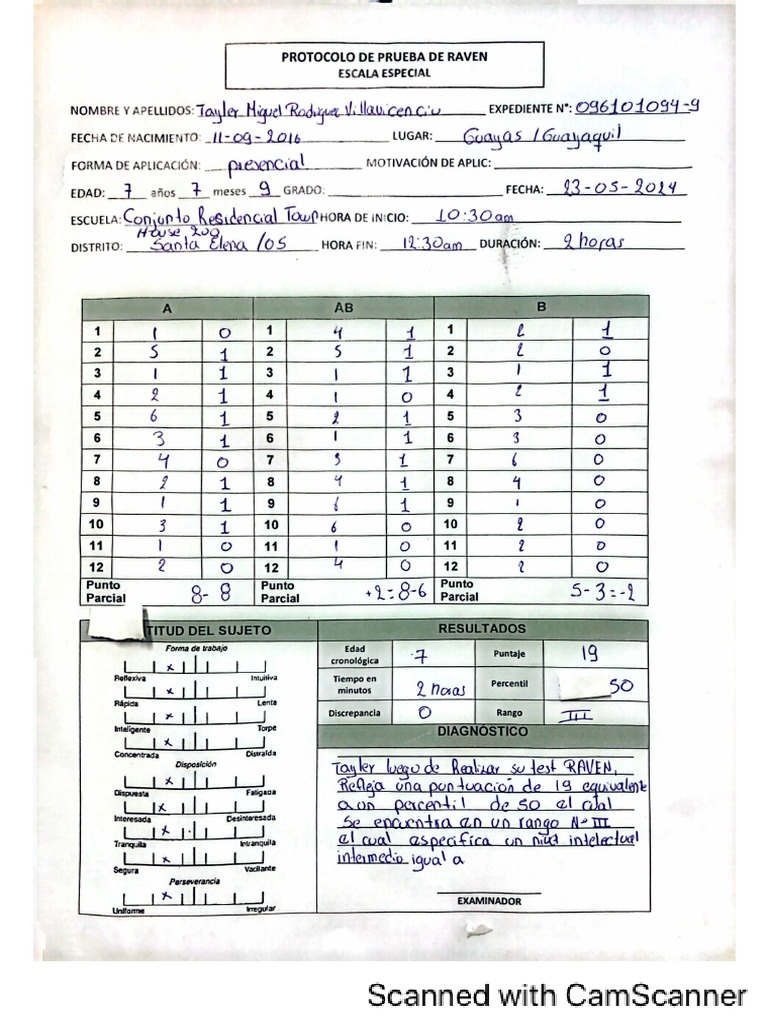 PROTOCOLO DE PRUEBA DE RAVEN
ESCALA ESPECIAL
NOMBRE Y APELLIDOS: Tayler Miguel Rodriguez Villavicencio EXPEDIENTE N°: 096101094-9
FECHA DE NACIMIENTO: 11-09-2016 LUGAR: Guayas / Guayaquil
FORMA DE APLICACIÓN: presencial MOTIVACIÓN DE APLIC:
EDAD: 7 años 7 meses 9 GRADO: FECHA: 23-05-2024
ESCUELA: Conjunto Residencial Town HORA DE INICIO: 10:30am
House 200
DISTRITO: Santa Elena /05 HORA FIN: 12:30am DURACIÓN: 2 horas
A AB B
1 1 0 1 4 1 1 2 1
2 5 1 2 5 1 2 2 0
3 1 1 3 1 1 3 1 1
4 2 1 4 1 0 4 2 1
5 6 1 5 2 1 5 3 0
6 3 1 6 1 1 6 3 0
7 4 0 7 3 1 7 6 0
8 2 1 8 4 1 8 4 0
9 1 1 9 6 1 9 1 0
10 3 1 10 6 0 10 2 0
11 1 0 11 1 0 11 2 0
12 2 0 12 4 0 12 2 0
Punto Parcial 8-8 Punto Parcial +2=8-6 Punto Parcial 5-3=-2
TITUD DEL SUJETO
Forma de trabajo
x
Reflexiva Intuitiva
x
Rápida Lenta
x
Inteligente Torpe
x
Concentrada Distraída
Disposición
x
Dispuesta Fatigada
x
Interesada Desinteresada
x
Tranquila Intranquila
x
Segura Vacilante
Perseverancia
x
Uniforme Irregular
RESULTADOS
Edad cronológica 7 Puntaje 19
Tiempo en minutos 2 horas Percentil 50
Discrepancia 0 Rango III
DIAGNÓSTICO
Tayler luego de Realizar su test RAVEN,
Refleja una puntuación de 19 equivalente
a un percentil de 50 el cual
se encuentra en un rango N-III
el cual especifica un nivel intelectual
intermedio igual a
EXAMINADOR
Scanned with CamScanner